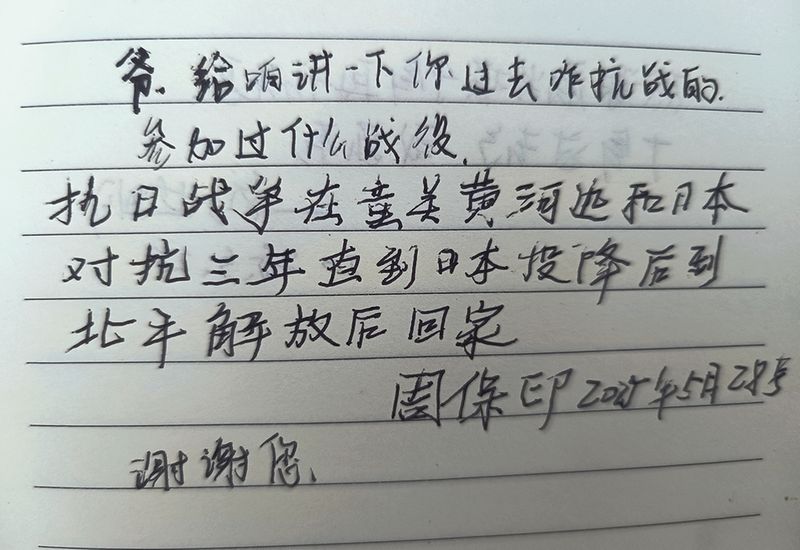 爷.给咱讲一下你过去咋抗战的.
参加过什么战役.
抗日战争在童关黄河边和日本
对抗三年直到日本投降后到
北平解放后回家
周保印2025年5月28号
谢谢您.